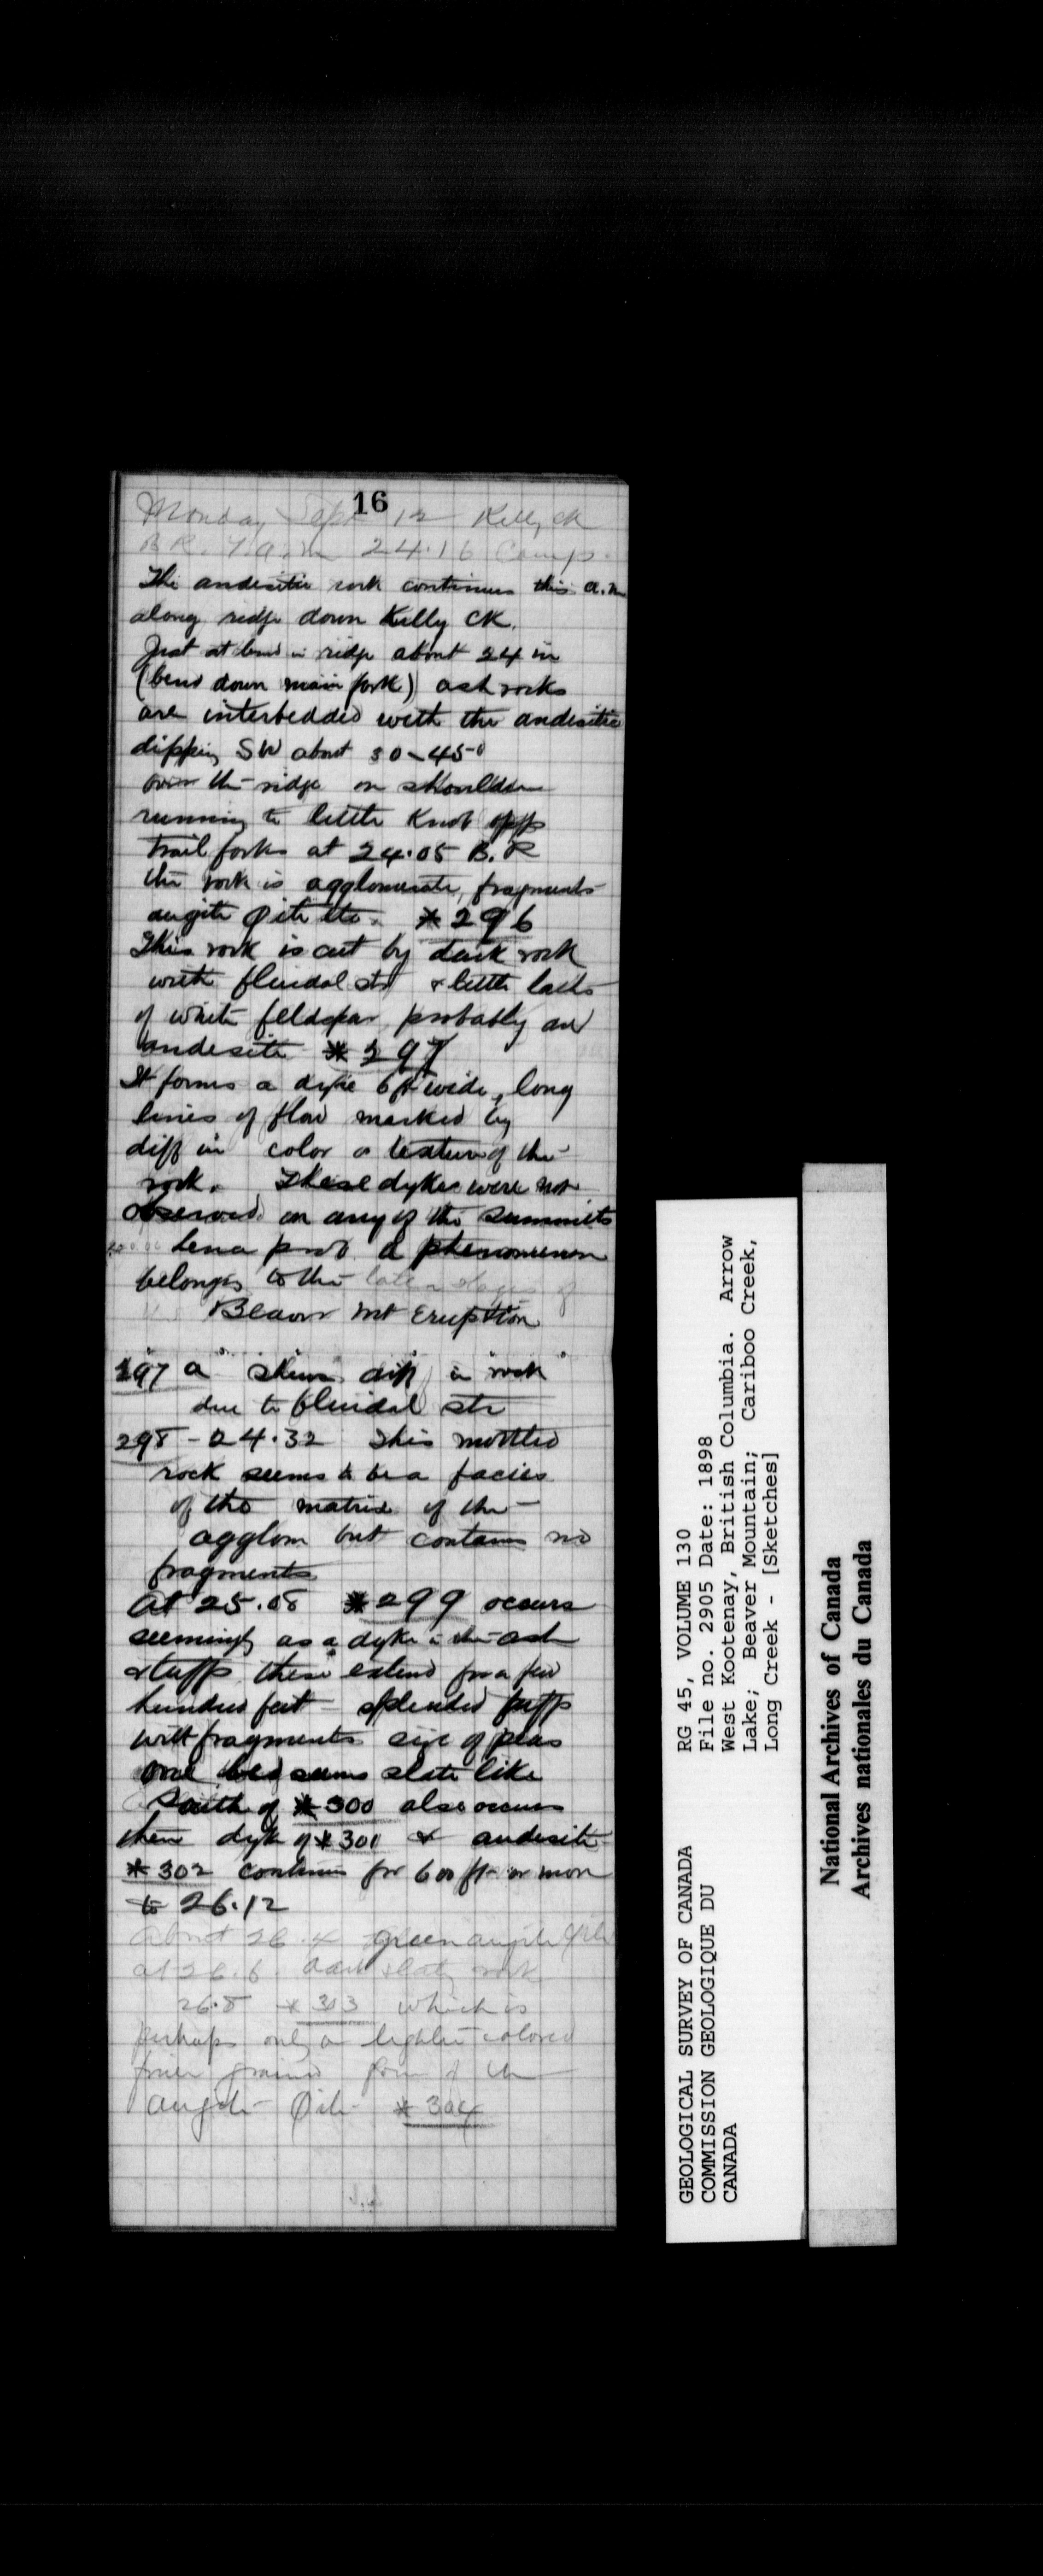 16
Monday Sept 12 Kelly Ck
B.R. 7 a.m 24.16 Camp.
The andesitic rock continues this a.m
along ridge down Kelly CK.
Just at bend in ridge about 24 in
(bend down main fork) ash rocks
are interbedded with the andesitic
dipping SW about 30-45°
over the ridge on shoulder
running to little Knob opp
trail forks at 24.05 B.R
the rock is agglomerate, fragments
augite φite etc. *296
This rock is cut by dark rock
with fluidal str & little laths
of white feldspar probably an
andesite *297
It forms a dyke 6 ft wide, long
lines of flow marked by
diff in color or texture of the
rock. These dykes were not
observed on any of the summits
hence prob. a phenomenon
belongs to the later stages of
Beaver Mt Eruption
297 a shows diff in "rock"
due to fluidal str
298 - 24.32 This mottled
rock seems to be a facies
of the matrix of the
agglom but contains no
fragments
At 25.08 *299 occurs
seemingly as a dyke in the ash
& tuffs these extend for a few
hundred feet splendid tuffs
with fragments size of peas
one bed seems slate like
South of *300 also occurs
then dyke of *301 & andesite
*302 continues for 600 ft or more
to 26.12
About 26.4 green augite φite
at 26.6 dark slaty rock
26.8 *303 which is
perhaps only a lighter colored
finer grained form of the
augite φite *304
GEOLOGICAL SURVEY OF CANADA
COMMISSION GEOLOGIQUE DU
CANADA
RG 45, VOLUME 130
File no. 2905 Date: 1898
West Kootenay, British Columbia. Arrow
Lake; Beaver Mountain; Cariboo Creek,
Long Creek - [Sketches]
National Archives of Canada
Archives nationales du Canada